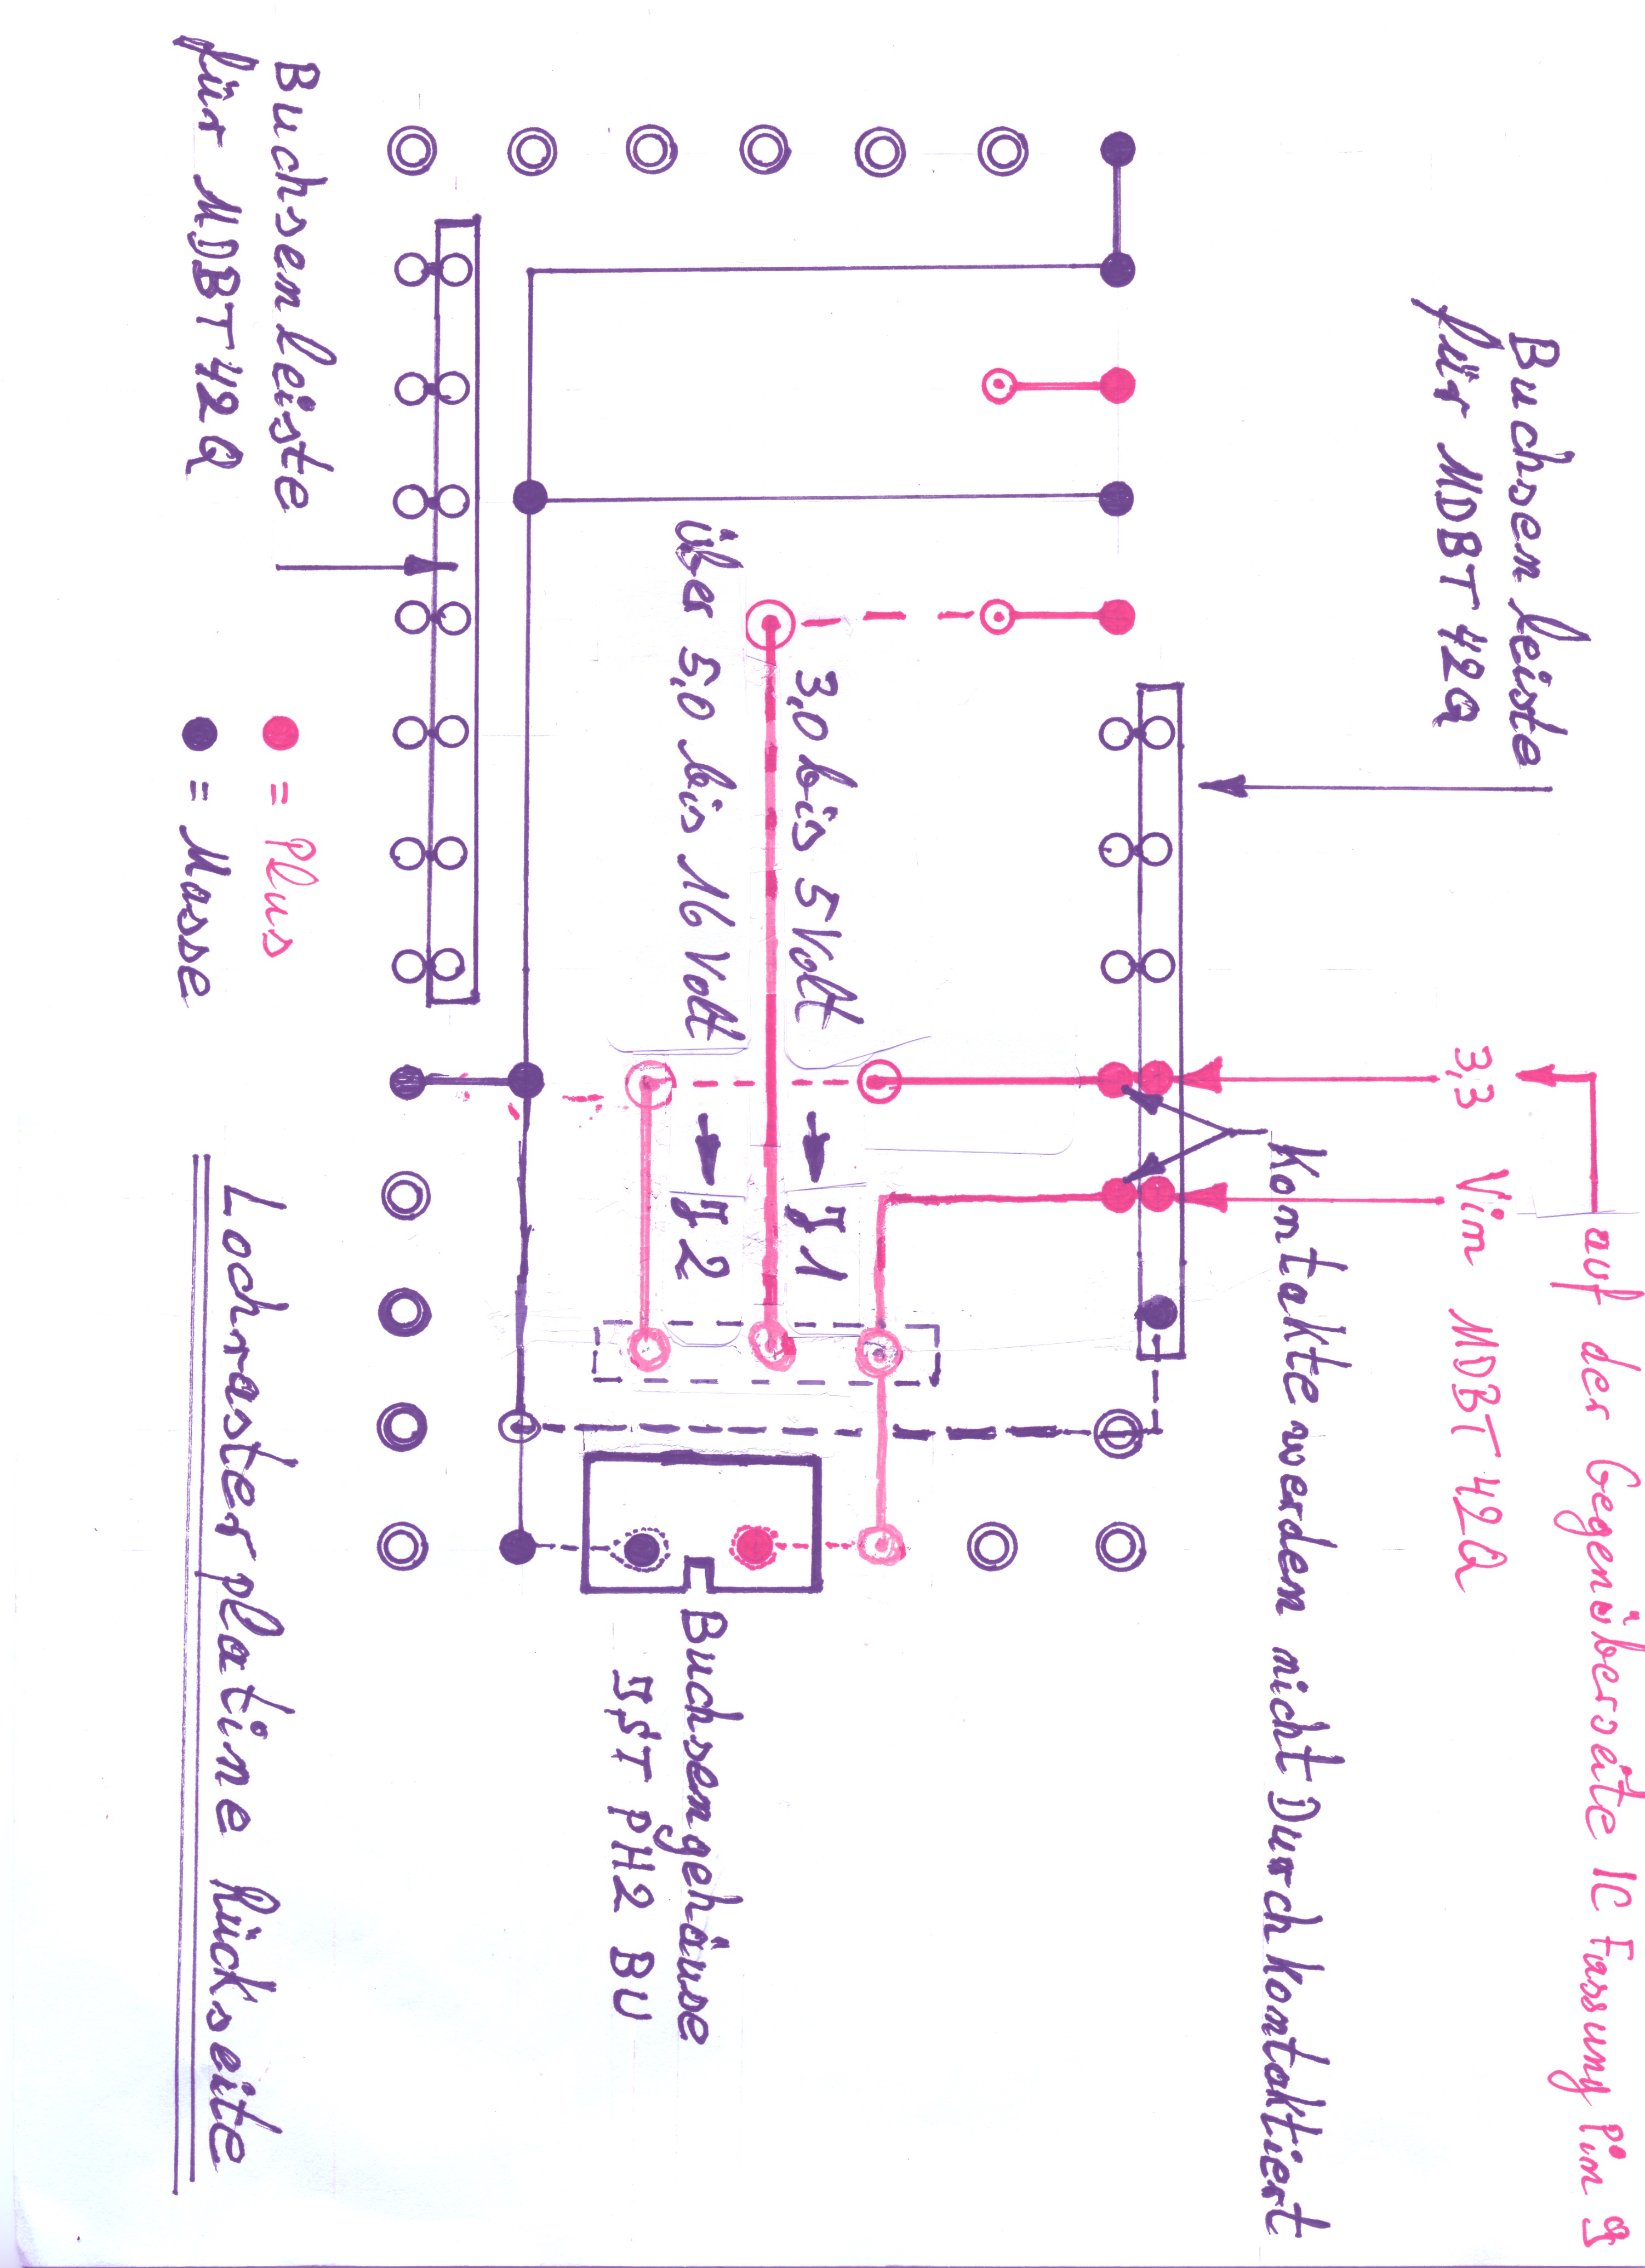 auf der Gegenüberseite IC Fassung Pin 9
Buchsenleiste
für MDBT 42Q
3,3 Vin MDBT 42Q
Kontakte werden nicht Durchkontaktiert
3,0 bis 5 Volt → J1
über 5,0 bis 16 Volt → J2
Buchsengehäuse
JST PH2 BU
Buchsenleiste
für MDBT 42Q
= Plus
= Masse
Lochrasterplatine Rückseite